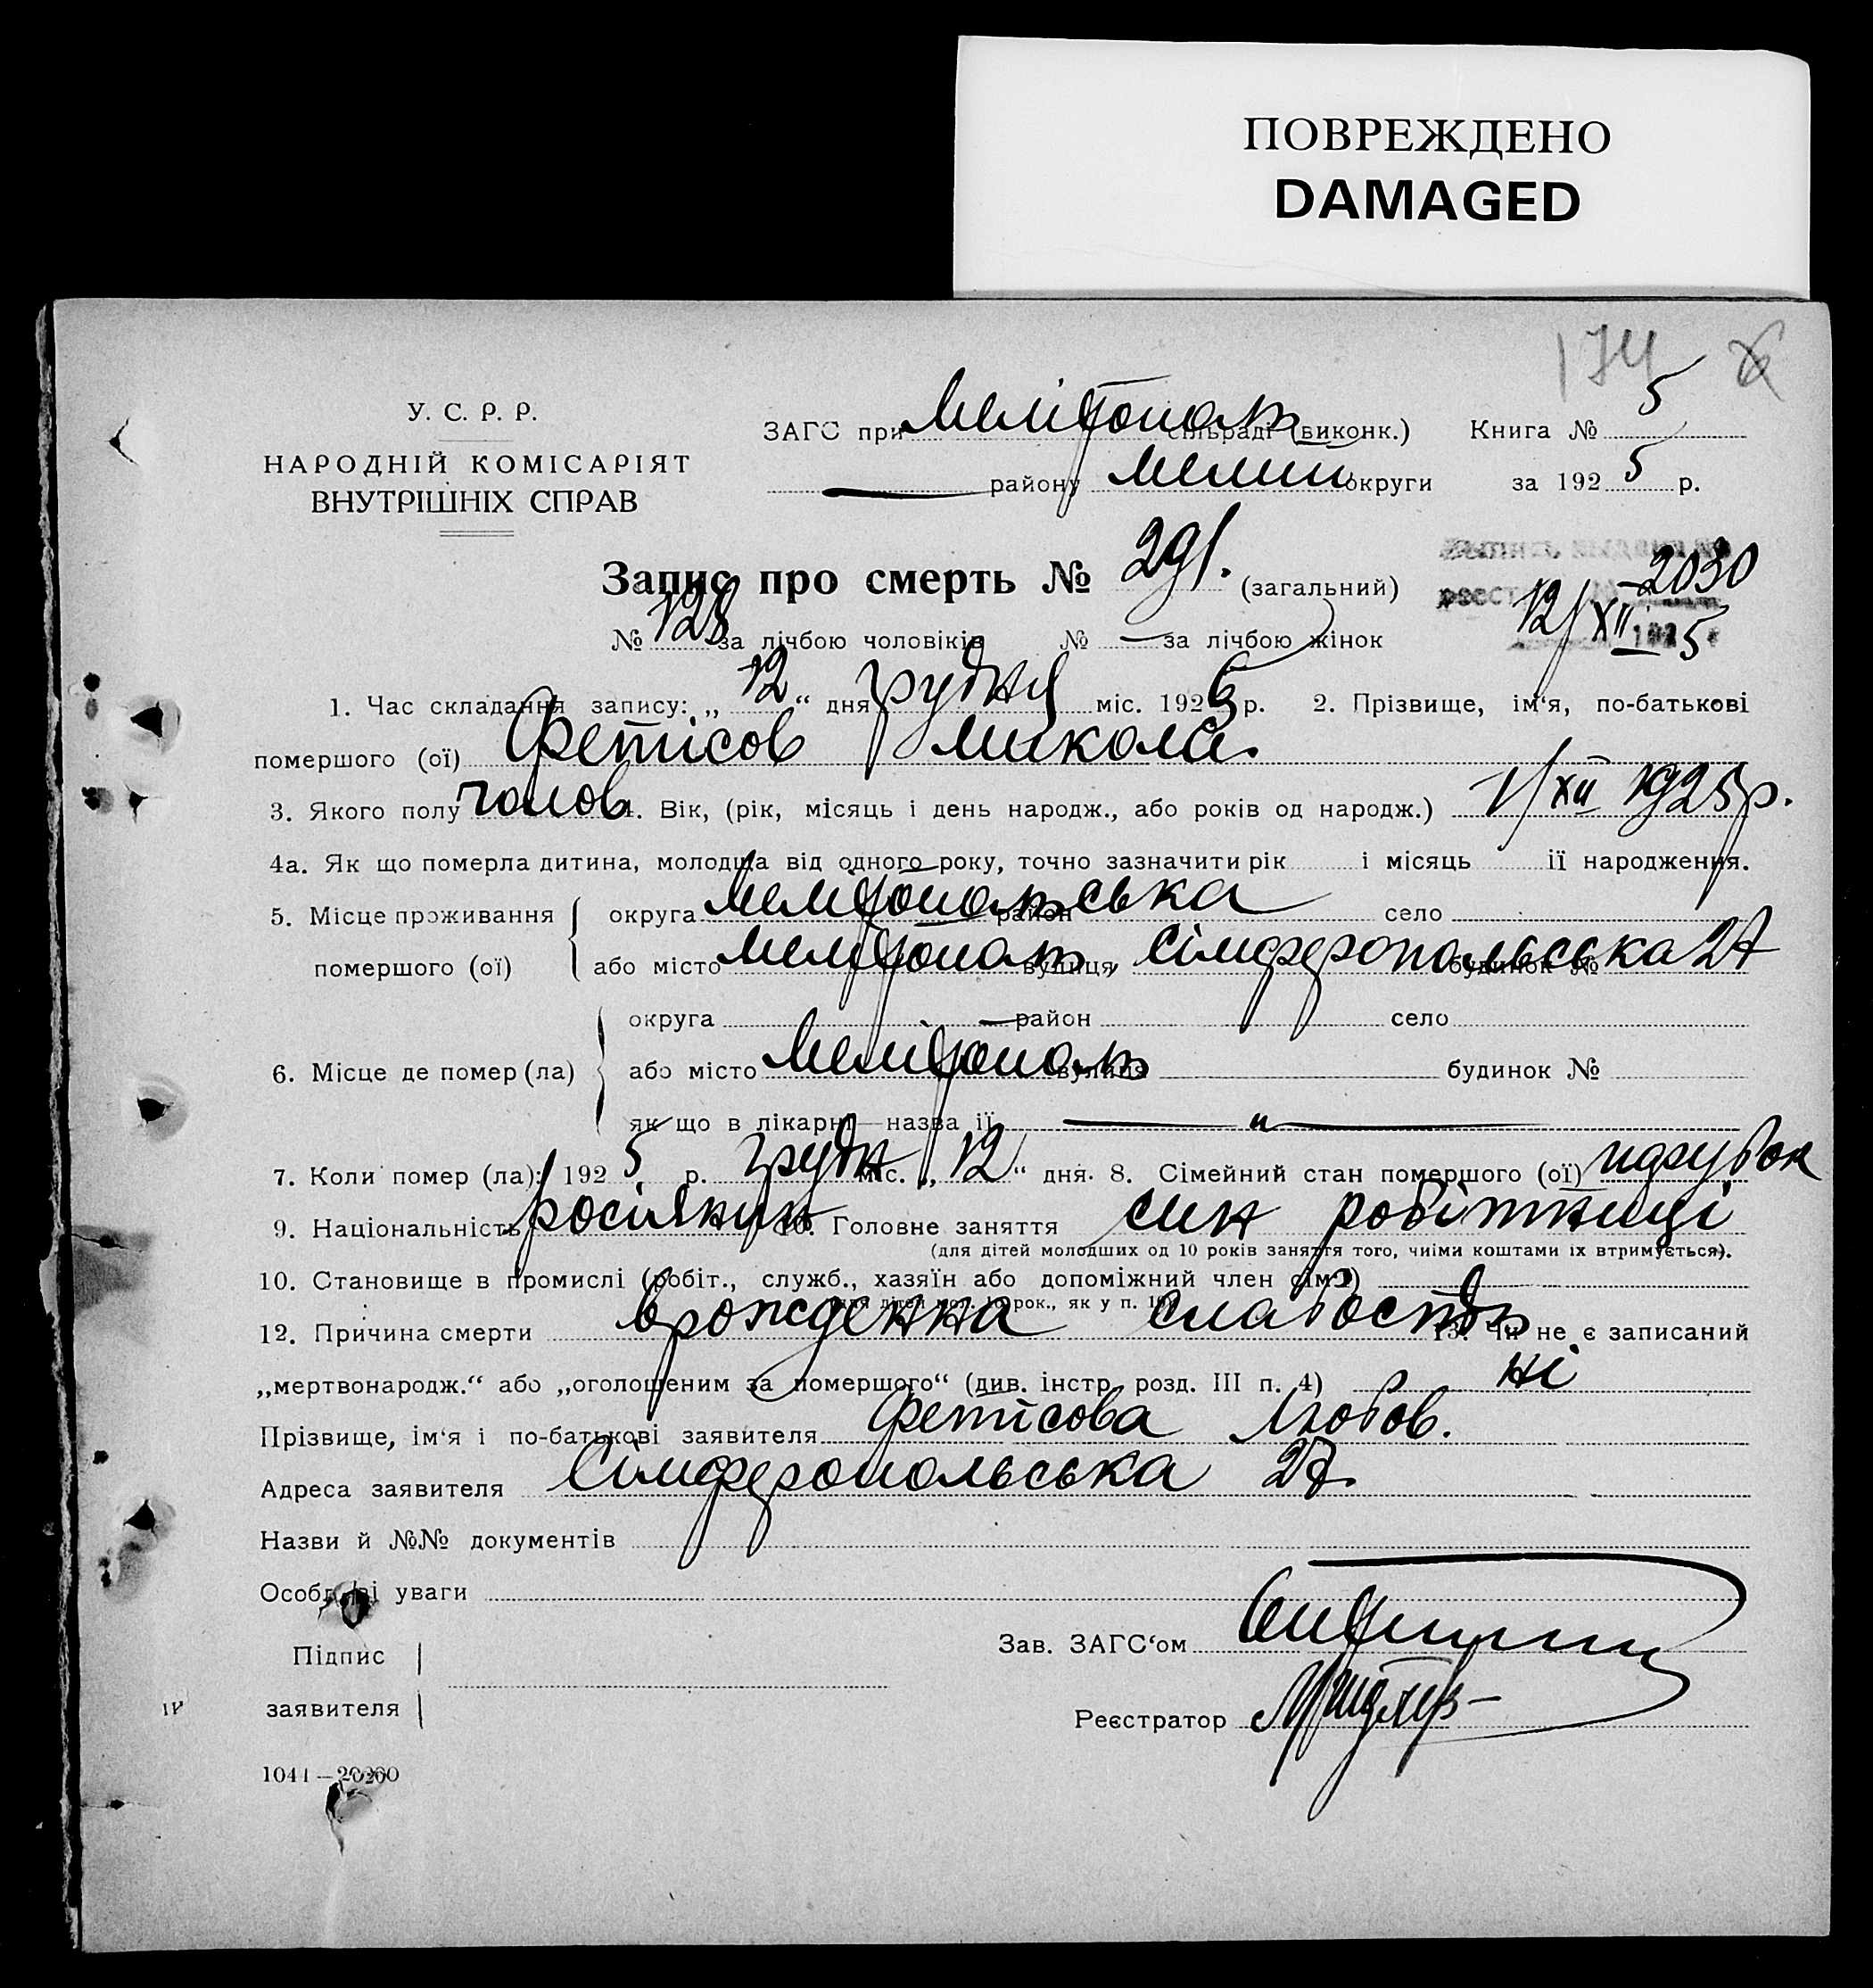 ПОВРЕЖДЕНО
DAMAGED
174
У. С. Р. Р.
НАРОДНІЙ КОМІСАРІЯТ
ВНУТРІШНІХ СПРАВ
ЗАГС при Мелітополь сільраді (виконк.) Книга № 5
району Мелит. округи за 1925 р.
Запис про смерть № 291. (загальний)
2030
12/XII 1925
№ 128 за лічбою чоловіків № — за лічбою жінок
1. Час складання запису: „12“ дня грудня міс. 1925 р. 2. Прізвище, ім‘я, по-батькові
помершого (ої) Фетісов Микола.
3. Якого полу чолов 4. Вік, (рік, місяць і день народж., або років од народж.) 1/XII 1925 р.
4а. Як що померла дитина, молодша від одного року, точно зазначити рік і місяць її народження.
5. Місце проживання помершого (ої) округа Мелітопольська район село
або місто Мелітополь, вулиця Сімферопольська будинок № 27
6. Місце де помер (ла) округа — район село
або місто Мелітополь вулиця будинок №
як що в лікарні—назва її — „ —
7. Коли помер (ла): 1925 р. грудн міс. „12“ дня. 8. Сімейний стан помершого (ої) парубок
9. Національність росіянин 10. Головне заняття син робітниці
(для дітей молодших од 10 років заняття того, чиїми коштами їх втримується).
10. Становище в промислі (робіт., служб., хазяїн або допоміжний член сім‘ї)
(для дітей мол. 10 рок., як у п. 10)
12. Причина смерти врожденна слабость 13. Чи не є записаний
„мертвонародж.“ або „оголошеним за помершого“ (див. інстр. розд. III п. 4) ні
Прізвище, ім‘я і по-батькові заявителя Фетісова Любов.
Адреса заявителя Сімферопольська 27.
Назви й №№ документів
Особливі уваги
Зав. ЗАГС‘ом
Підпис
заявителя
Реєстратор
1041—20200